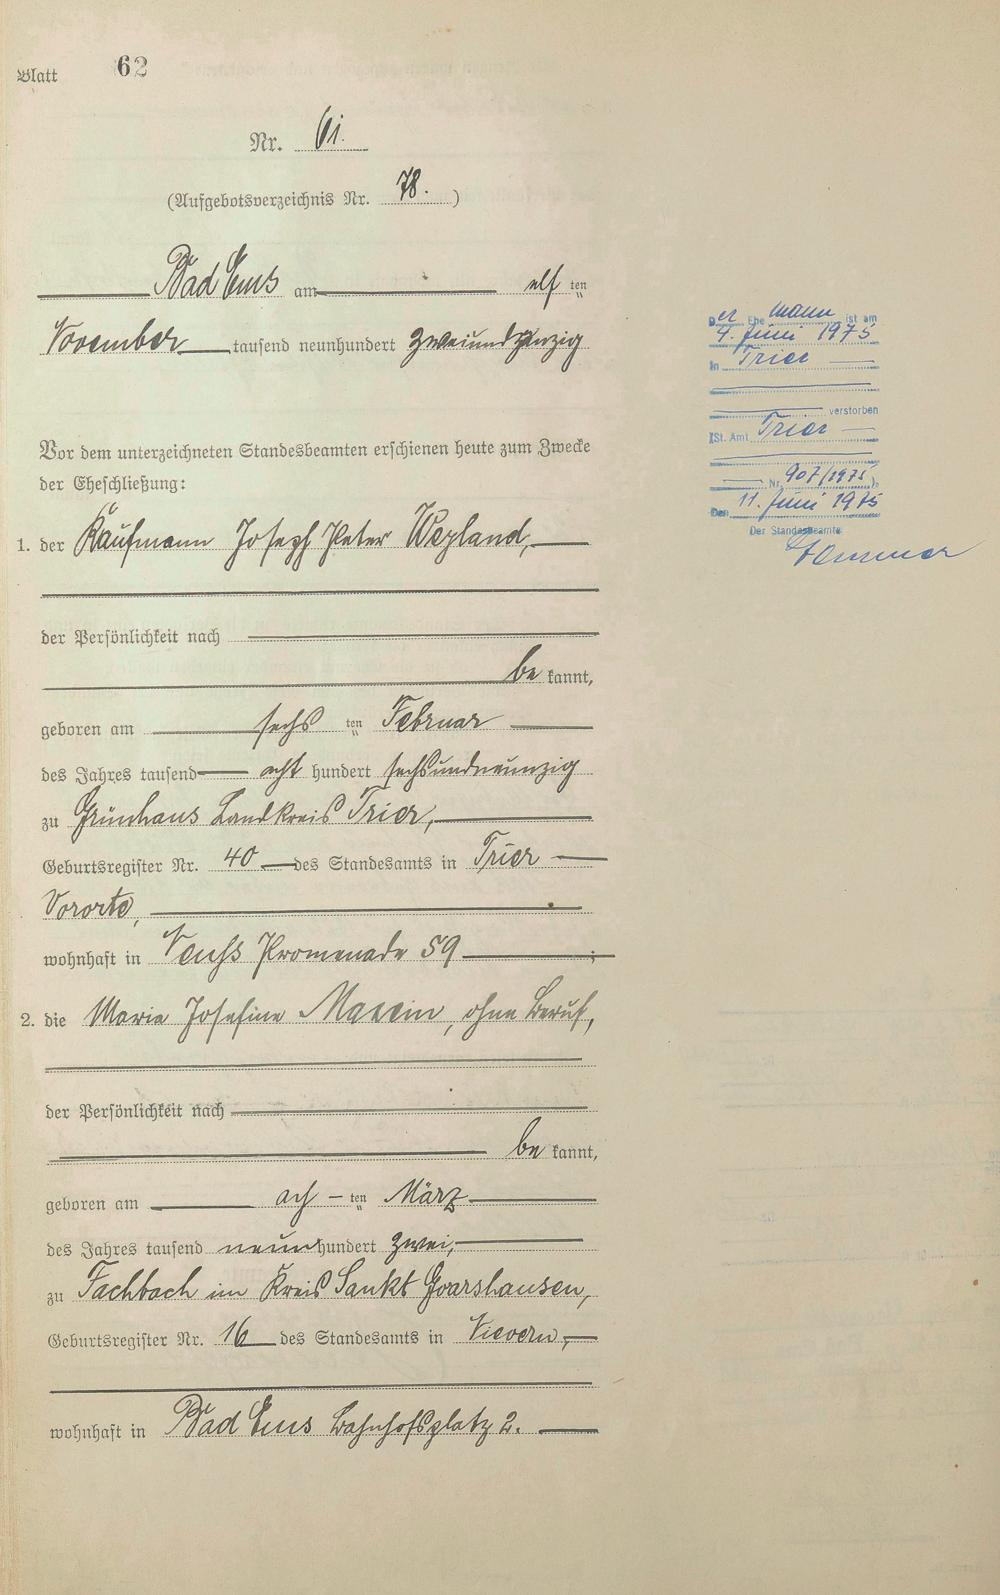 Blatt 62
Nr. 61.
(Aufgebotsverzeichnis Nr. 78.)
Bad Ems am elf ten
November tausend neunhundert zweiundzwanzig
Vor dem unterzeichneten Standesbeamten erschienen heute zum Zwecke
der Eheschließung:
1. der Kaufmann Joseph Peter Weyland,
der Persönlichkeit nach
be kannt,
geboren am sechs ten Februar
des Jahres tausend acht hundert sechsundneunzig
zu Grünhaus Landkreis Trier,
Geburtsregister Nr. 40 des Standesamts in Trier
Vororte,
wohnhaft in Neuss Promenade 59 ;
2. die Maria Josefine Massin, ohne Beruf,
der Persönlichkeit nach
be kannt,
geboren am ach ten März
des Jahres tausend neun hundert zwei,
zu Fachbach im Kreis Sankt Goarshausen,
Geburtsregister Nr. 16 des Standesamts in Nievern,
wohnhaft in Bad Ems Bahnhofsplatz 2.
Der Ehe mann ist am
4. Juni 1975
in Trier
verstorben
(St. Amt Trier
Nr. 907/1975).
Den 11. Juni 1975
Der Standesbeamte